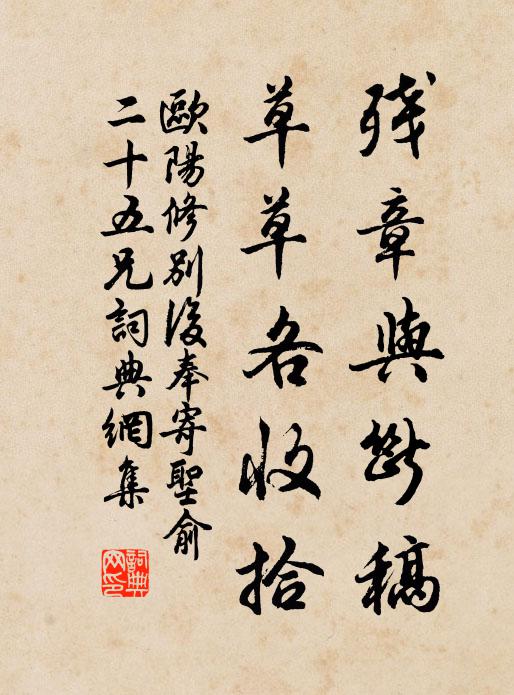 残章與斷稿
草草各收拾
歐陽修別後奉寄聖俞
二十五兄詞典網集
詞典
网印